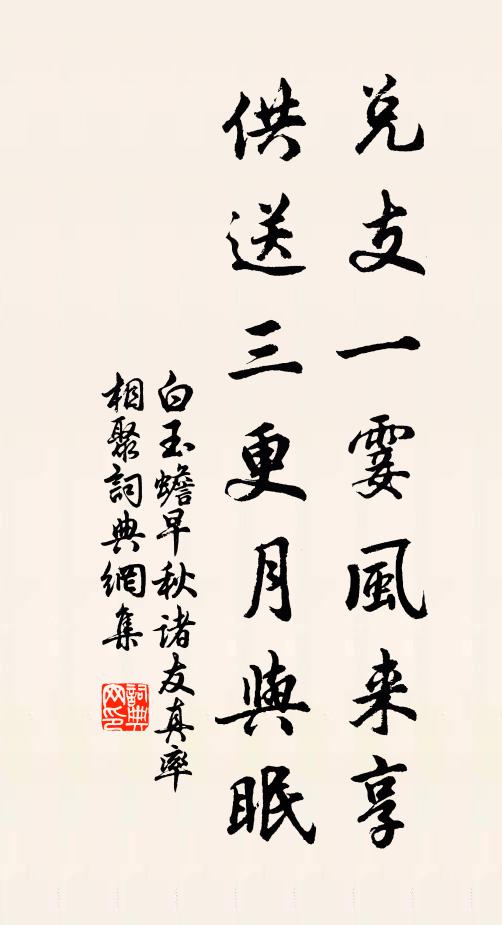 兑支一霎風来享
供送三更月與眠
白玉蟾早秋诸友真率
相聚詞典網集
詞典网印